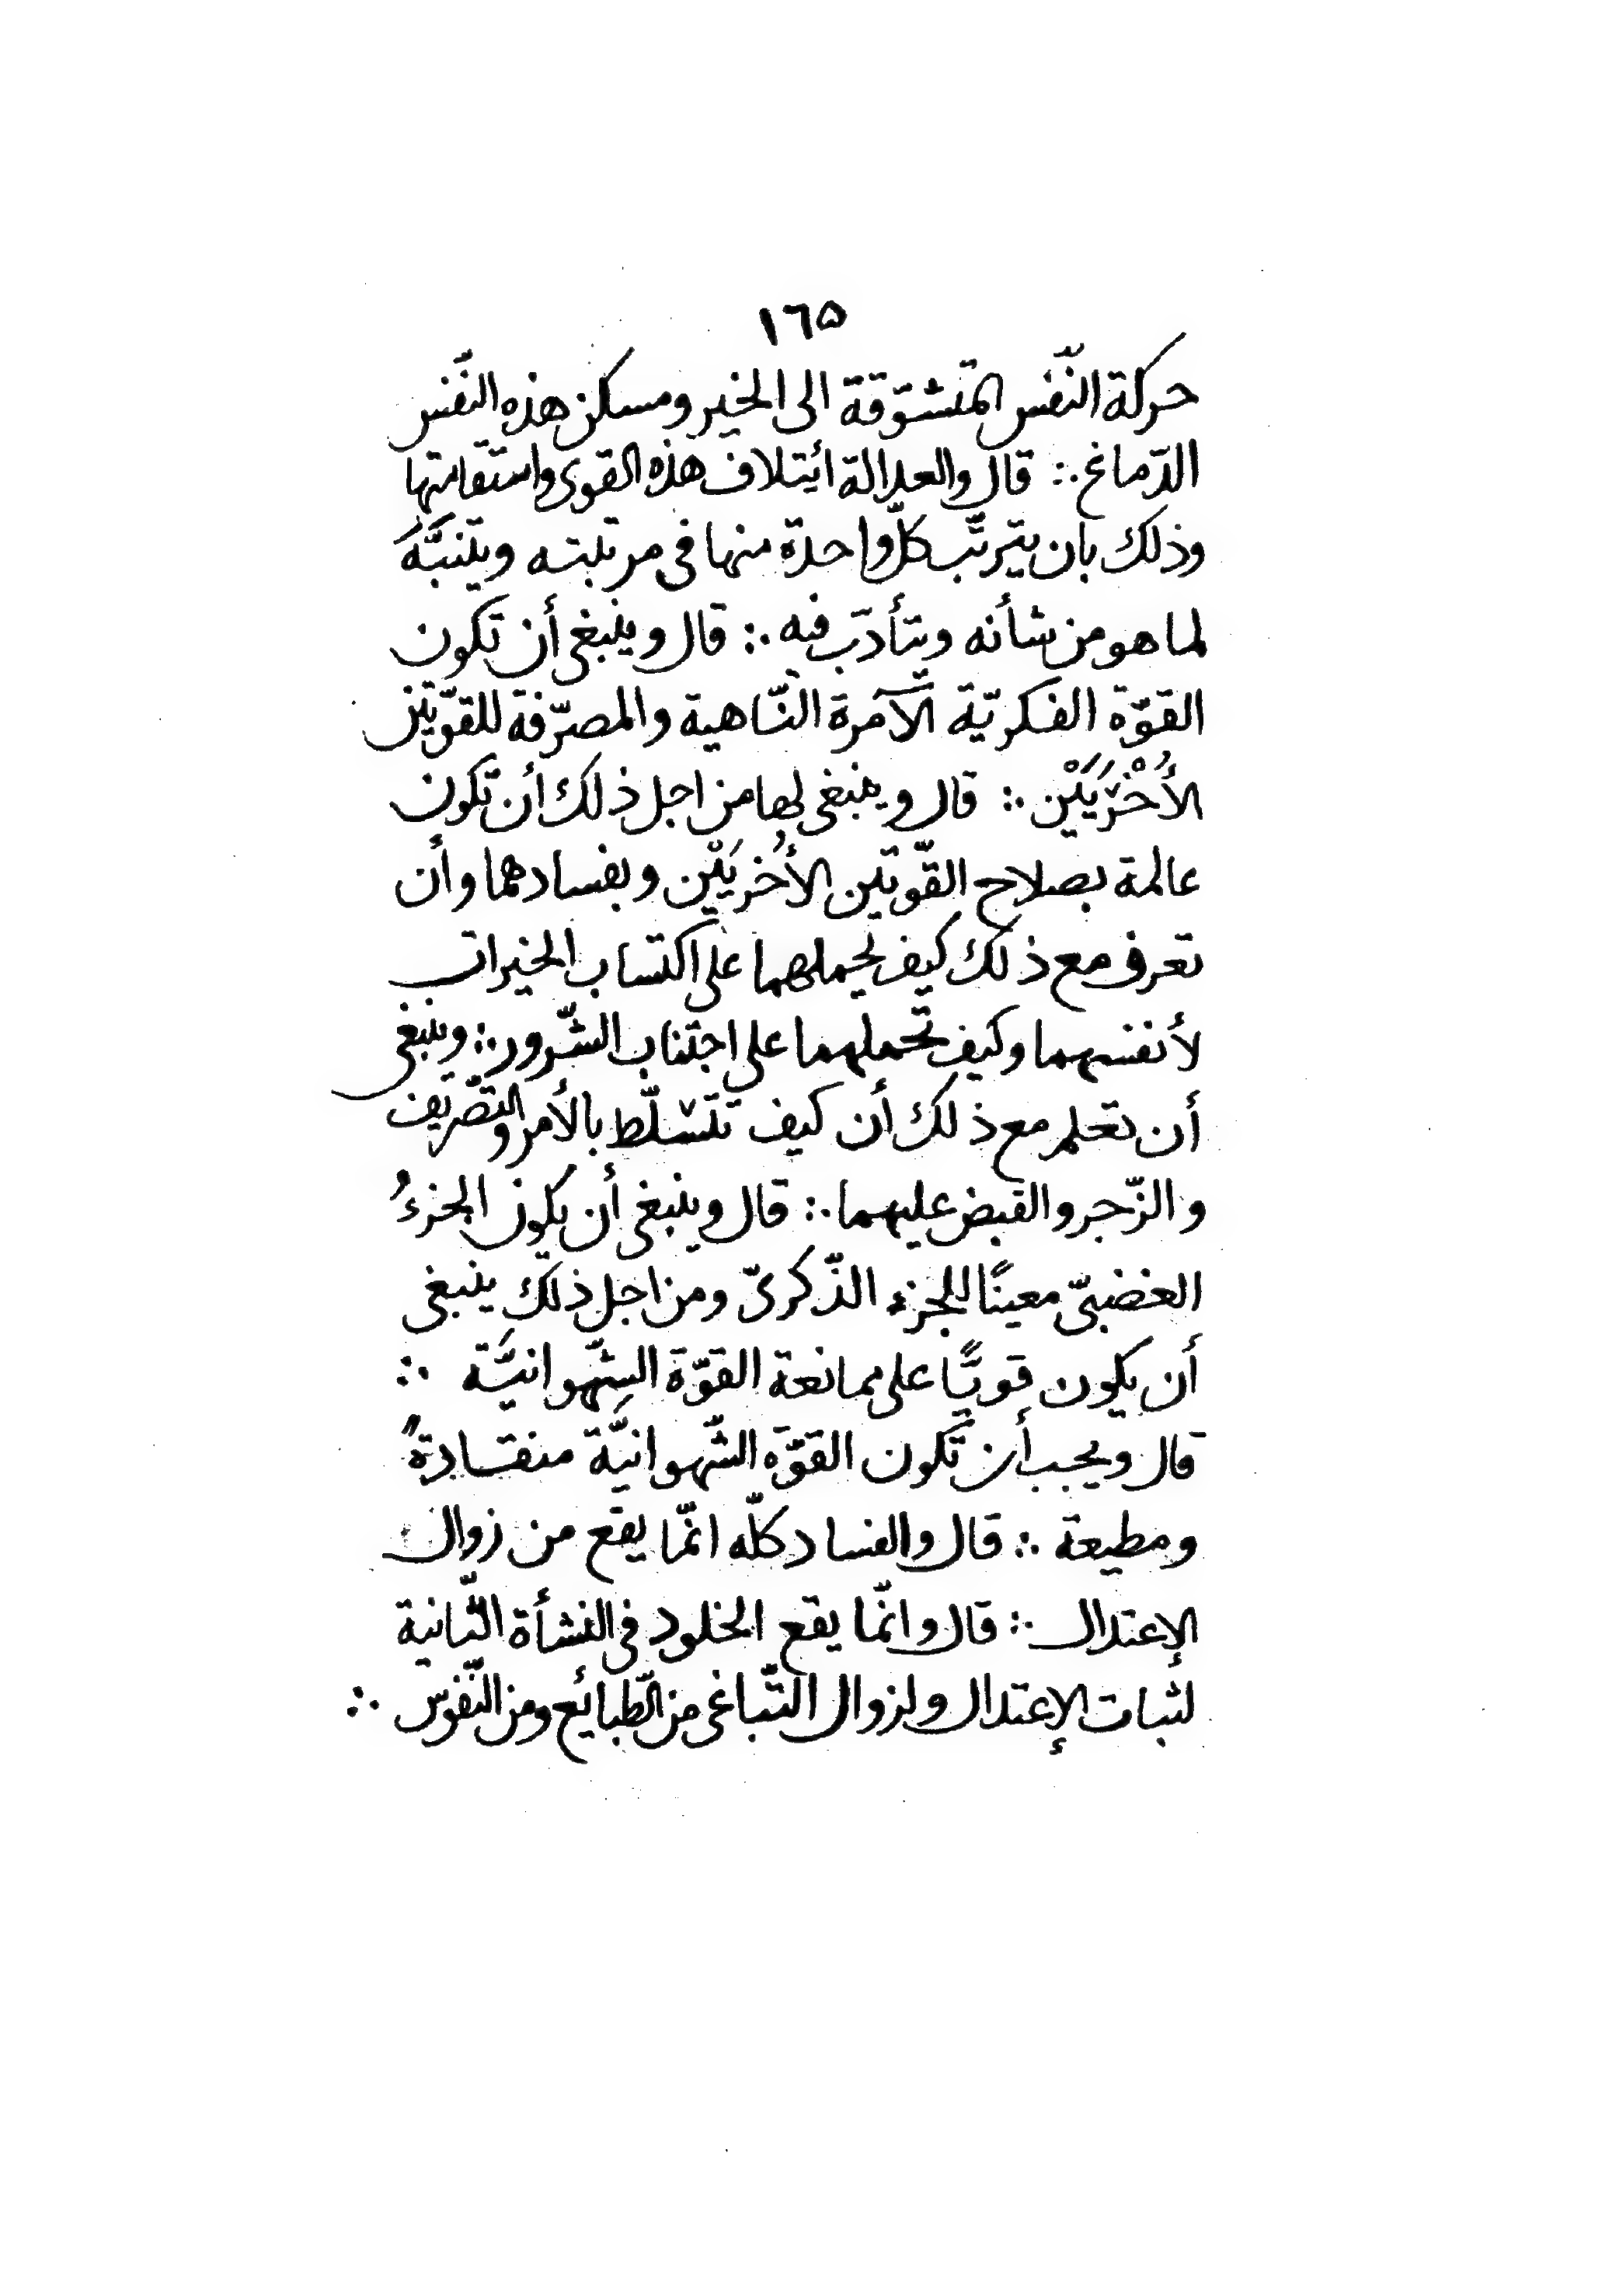 ١٦٥
حركة النّفس المتشوّقة الى الخير ومسكن هذه النّفس
الدّماغ ∴ قال والعدالة ائيتلاف هذه القوى واستقامتها
وذلك بان يترتّب كلّ واحدة منها فى مرتبته ويتنبَّهَ
لما هو من شأنه ويتأدّب فيه ∴ قال وينبغى أن تكون
القوّة الفكريّة الآمرة النّاهية والمصرّفة للقوّتين
الأُخْرَيَيْن ∴ قال وينبغى لها من اجل ذلك أن تكون
عالمة بصلاح القوّتين الأُخريَيْن وبفسادهما وأن
تعرف مع ذلك كيف يحملهما على اكتساب الخيرات
لأنفسهما وكيف تحملهما على اجتناب الشّرور ∴ وينبغى
أن تعلم مع ذلك أن كيف تتسلّط بالأمر والتّصريف
والزّجر والقبض عليهما ∴ قال وينبغى أن يكون الجزءُ
الغضبىّ معينًا للجزء الذّكرىّ ومن اجل ذلك ينبغى
أن يكون قويًّا على ممانعة القوّة الشّهوانيَّة ∴
قال ويجب أن تكون القوَّة الشّهوانيَّة منقادةً
ومطيعة ∴ قال والفساد كلّه انّما يقع من زوال
الإعتدال ∴ قال وانّما يقع الخلود فى النشأة الثّانية
لثبات الإعتدال ولزوال التّباغى من الطّبائع ومن النّفوس ∴